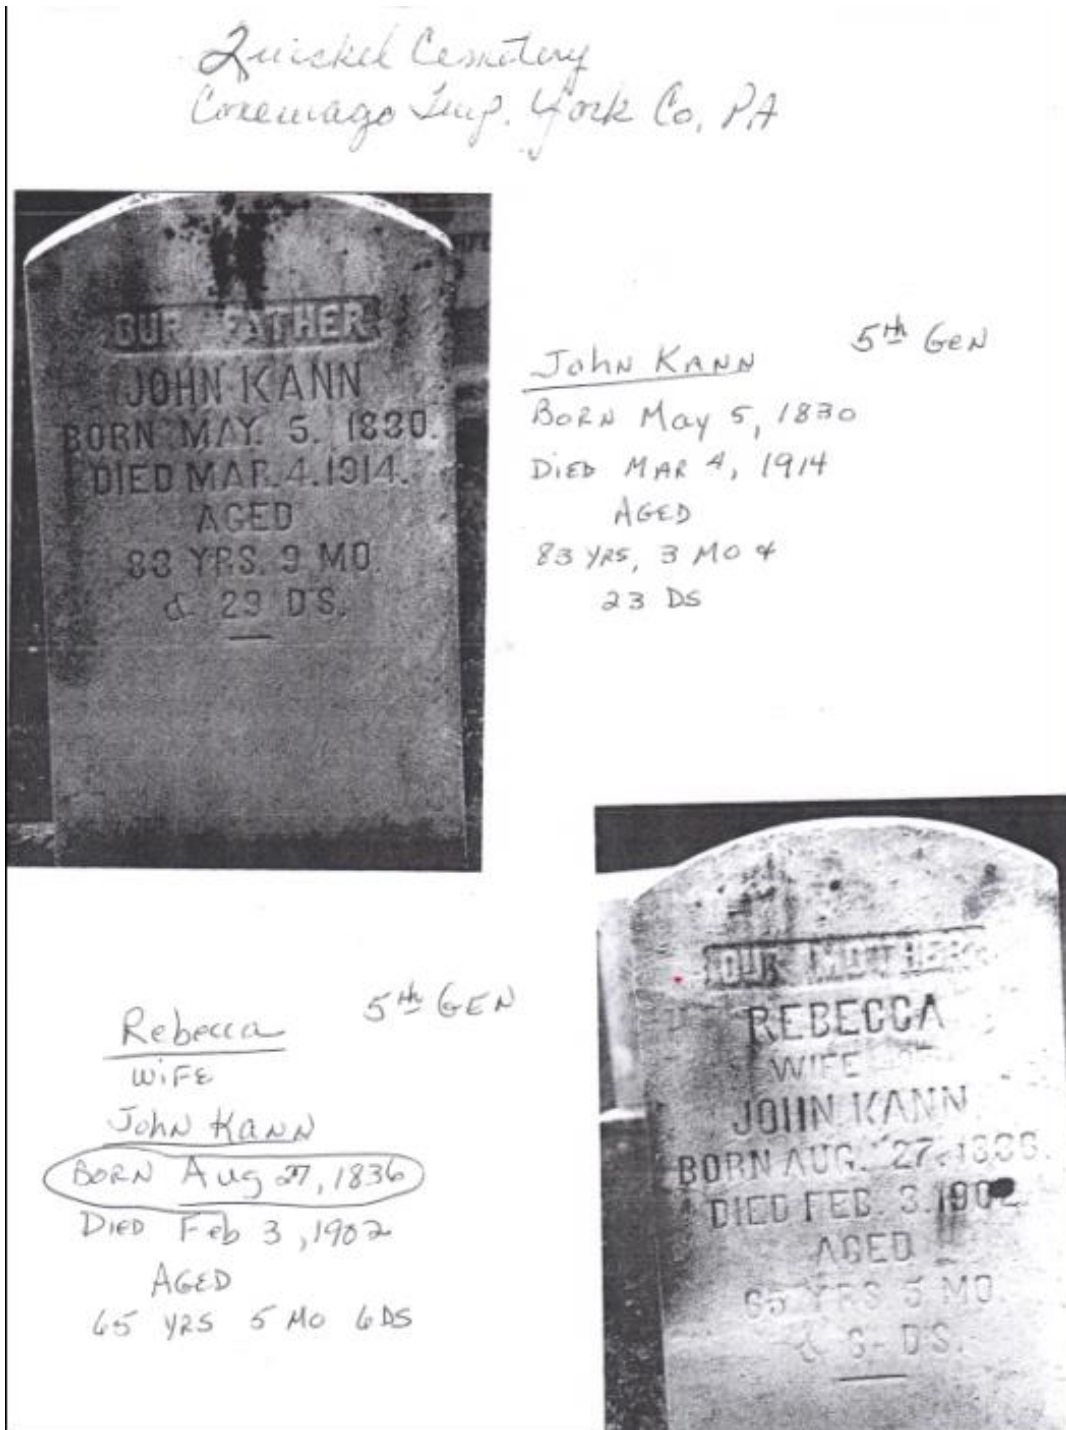 Quickel Cemetery
Conewago Twp. York Co, PA
OUR FATHER
JOHN KANN
BORN MAY. 5. 1830.
DIED MAR. 4. 1914.
AGED
83 YRS. 9 MO.
& 29 D'S.
John Kann 5th Gen
Born May 5, 1830
Died Mar 4, 1914
Aged
83 yrs, 3 mo &
23 Ds
Rebecca 5th Gen
Wife
John Kann
Born Aug 27, 1836
Died Feb 3, 1902
Aged
65 yrs 5 mo 6 Ds
OUR MOTHER
REBECCA
WIFE OF
JOHN KANN
BORN AUG. 27. 1836.
DIED FEB. 3. 1902
AGED
65 YRS 5 MO.
& 6 D'S.